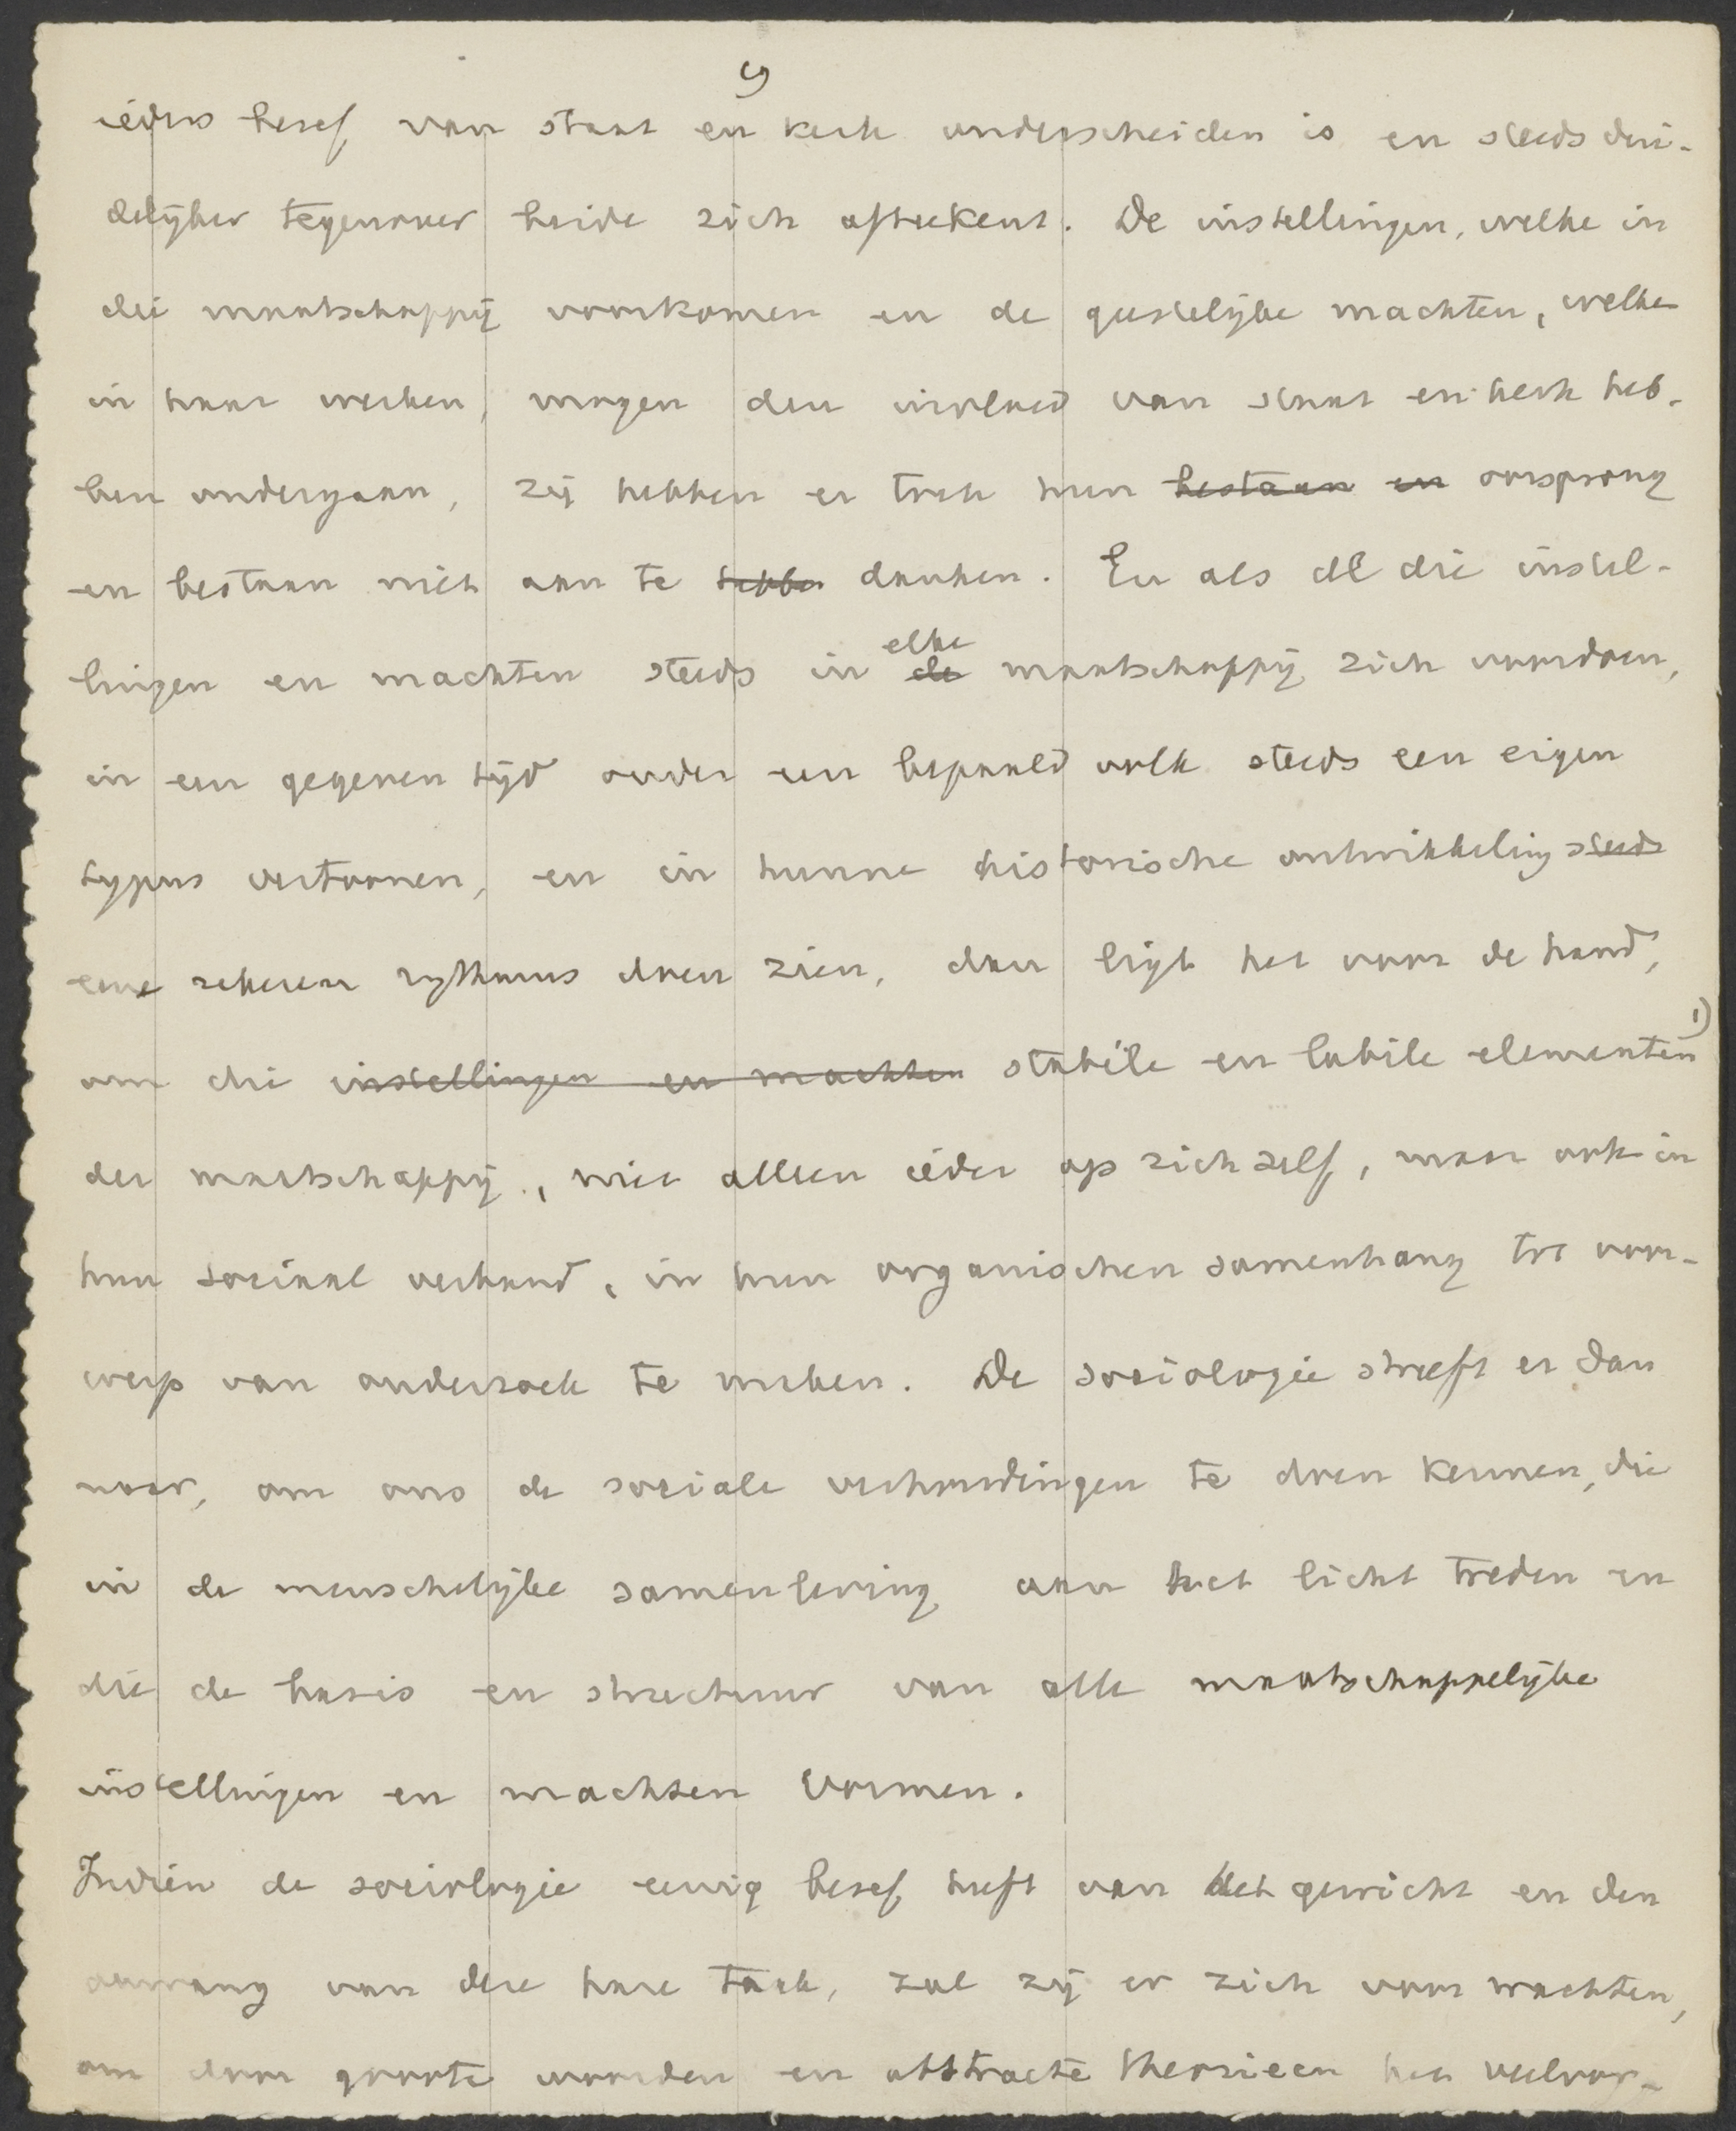 9
ieders besef van staat en kerk onderscheiden is en steeds dui-
delijker tegenover beide zich afteekent. De instellingen, welke in
die maatschappij voorkomen en de geestelijke machten, welke
in haar werken, mogen den invloed van staat en kerk heb-
ben ondergaan, zij hebben er toch hun bestaan en oorsprong
en bestaan niet aan te hebben danken. En als al die instel-
elke
lingen en machten steeds in de maatschappij zich voordoen,
in een gegeven tijd onder een bepaald volk steeds een eigen
typus vertoonen, en in hunne historische ontwikkeling steeds
een zekeren rythmus doen zien, dan ligt het voor de hand,
om die instellingen en machten stabiele en labile elementen 1)
der maatschappij, niet alleen ieder op zichzelf, maar ook in
hun sociaal verband, in hun organischen samenhang tot voor-
werp van onderzoek te maken. De sociologie streeft er dan
naar, om ons de sociale verhoudingen te doen kennen, die
in de menschelijke samenleving aan het licht treden en
die de basis en structuur van alle maatschappelijke
instellingen en machten vormen.
Indien de sociologie eenig besef heeft van het gewicht en den
omvang van deze hare taak, zal zij er zich voor wachten,
om door groote woorden en abstracte theorieen het veelvor-